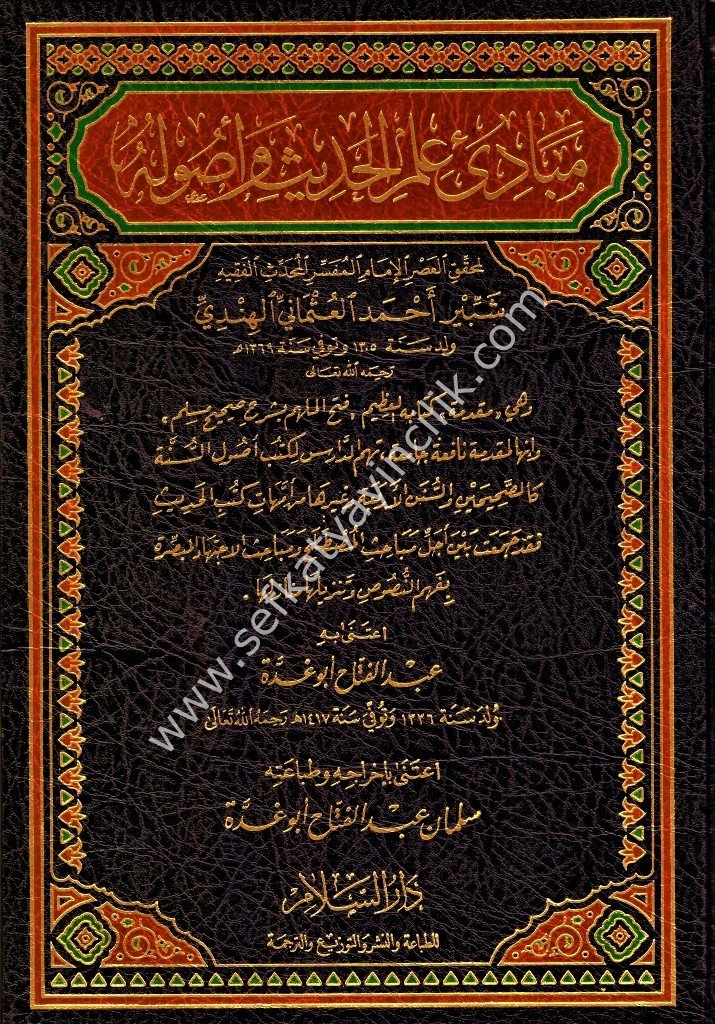 مبادئ علم الحديث وأصوله
لمحقق العصر الإمام المفسر المحدث الفقيه
شبير أحمد العثماني الهندي
ولد سنة ١٣٠٥ وتوفي سنة ١٣٦٩هـ
رحمه الله تعالى
وهي «مقدمة» كتابه العظيم «فتح الملهم بشرح صحيح مسلم»
وإنها لمقدمة نافعة جامعة تهم الدارس لكتب أصول السنة
كالصحيحين والسنن الأربعة وغيرها من أمهات كتب الحديث
فقد جمعت بين أجل مباحث المصطلح ومباحث الاجتهاد المبصرة
بفهم النصوص وتنزيلها
اعتنى به
عبد الفتاح أبو غدة
ولد سنة ١٣٣٦ وتوفي سنة ١٤١٧هـ رحمه الله تعالى
اعتنى بإخراجه وطباعته
سلمان عبد الفتاح أبو غدة
دار السلام
للطباعة والنشر والتوزيع والترجمة
www.sefkatyayincilik.com